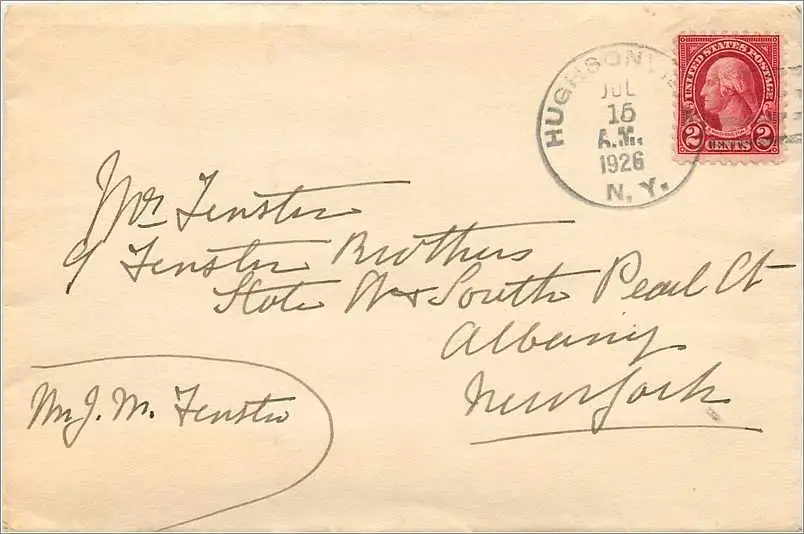 HUGHSONVI
JUL
15
A.M.
1926
N. Y.
UNITED STATES POSTAGE
WASHINGTON
2 CENTS 2
Mr Fenster
% Fenster Brothers
State St & South Pearl St
Albany
New York
Mr J. M. Fenster